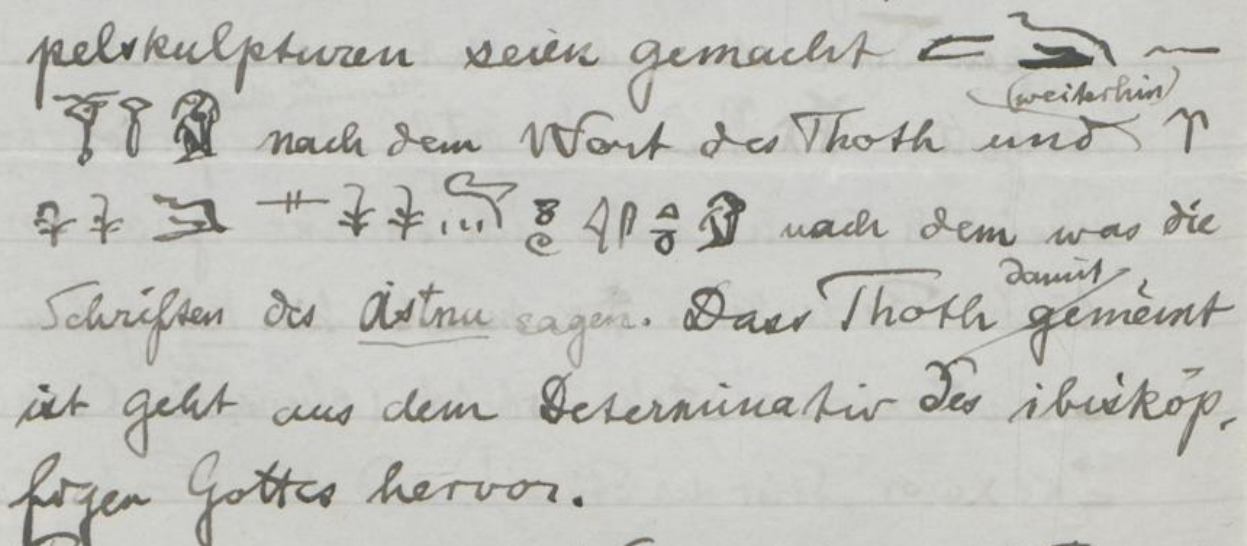 pelskulpturen seien gemacht
(weiterhin)
nach dem Wort des Thoth und
nach dem was die
damit
Schriften des Astnu sagen. Dass Thoth gemeint
ist geht aus dem Determinativ des ibisköp-
figen Gottes hervor.